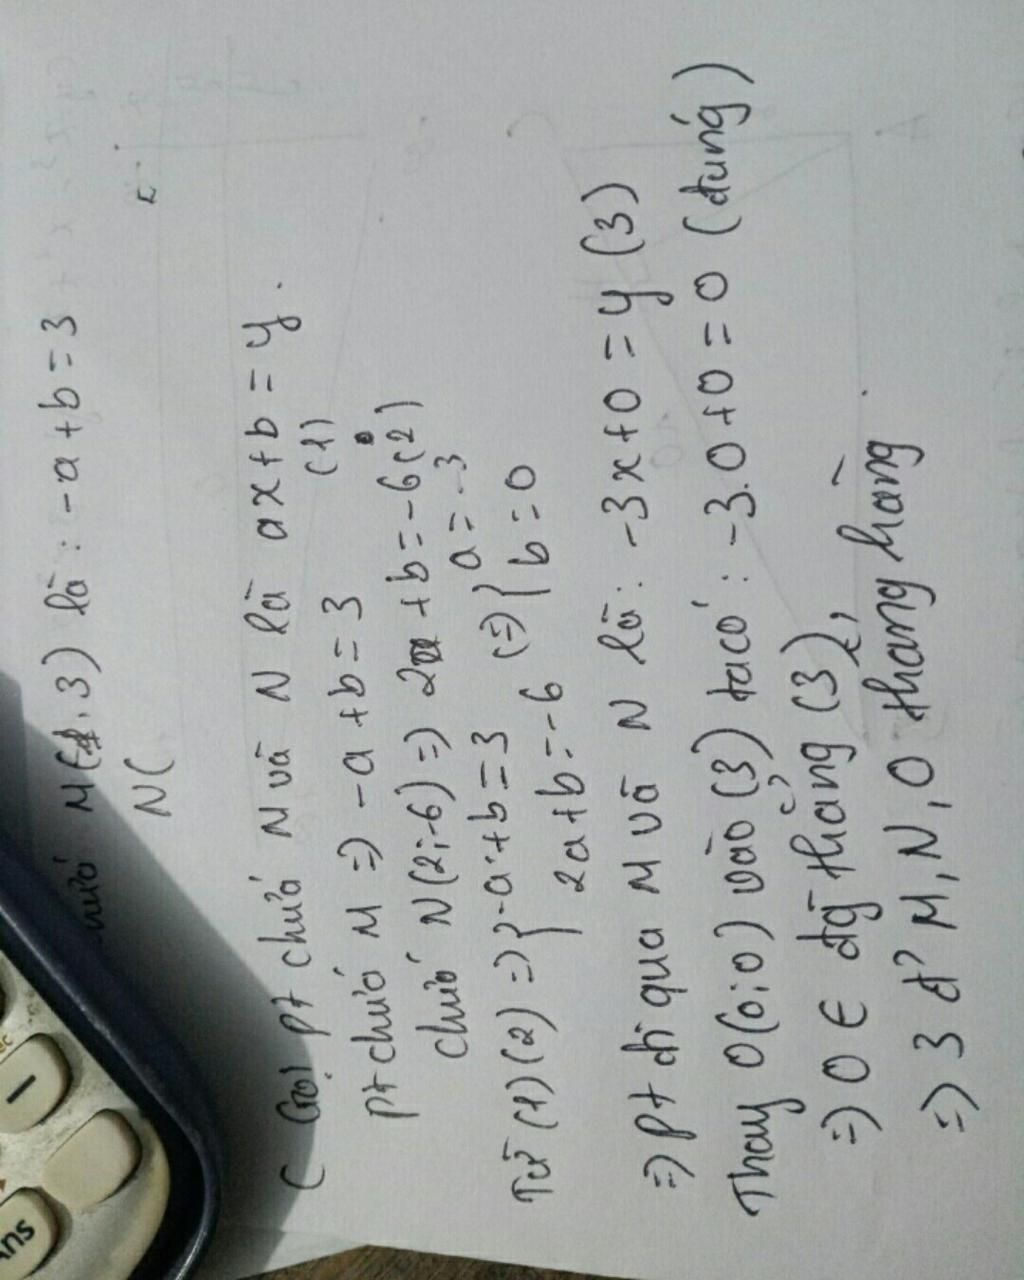 chứa M(-1; 3) là: -a+b=3
N(
( Gọi pt chứa M và N là ax+b=y.
pt chứa M => -a+b=3 (1)
chứa N(2;-6) => 2a+b=-6(2)
Từ (1)(2) => { -a+b=3 (=) { a=-3
2a+b=-6 b=0
=> pt đi qua M và N là: -3x+0=y (3)
Thay O(0;0) vào (3) ta có: -3.0+0=0 (đúng)
=> O ∈ đg thẳng (3),
=> 3 đ' M, N, O thẳng hàng
Ans